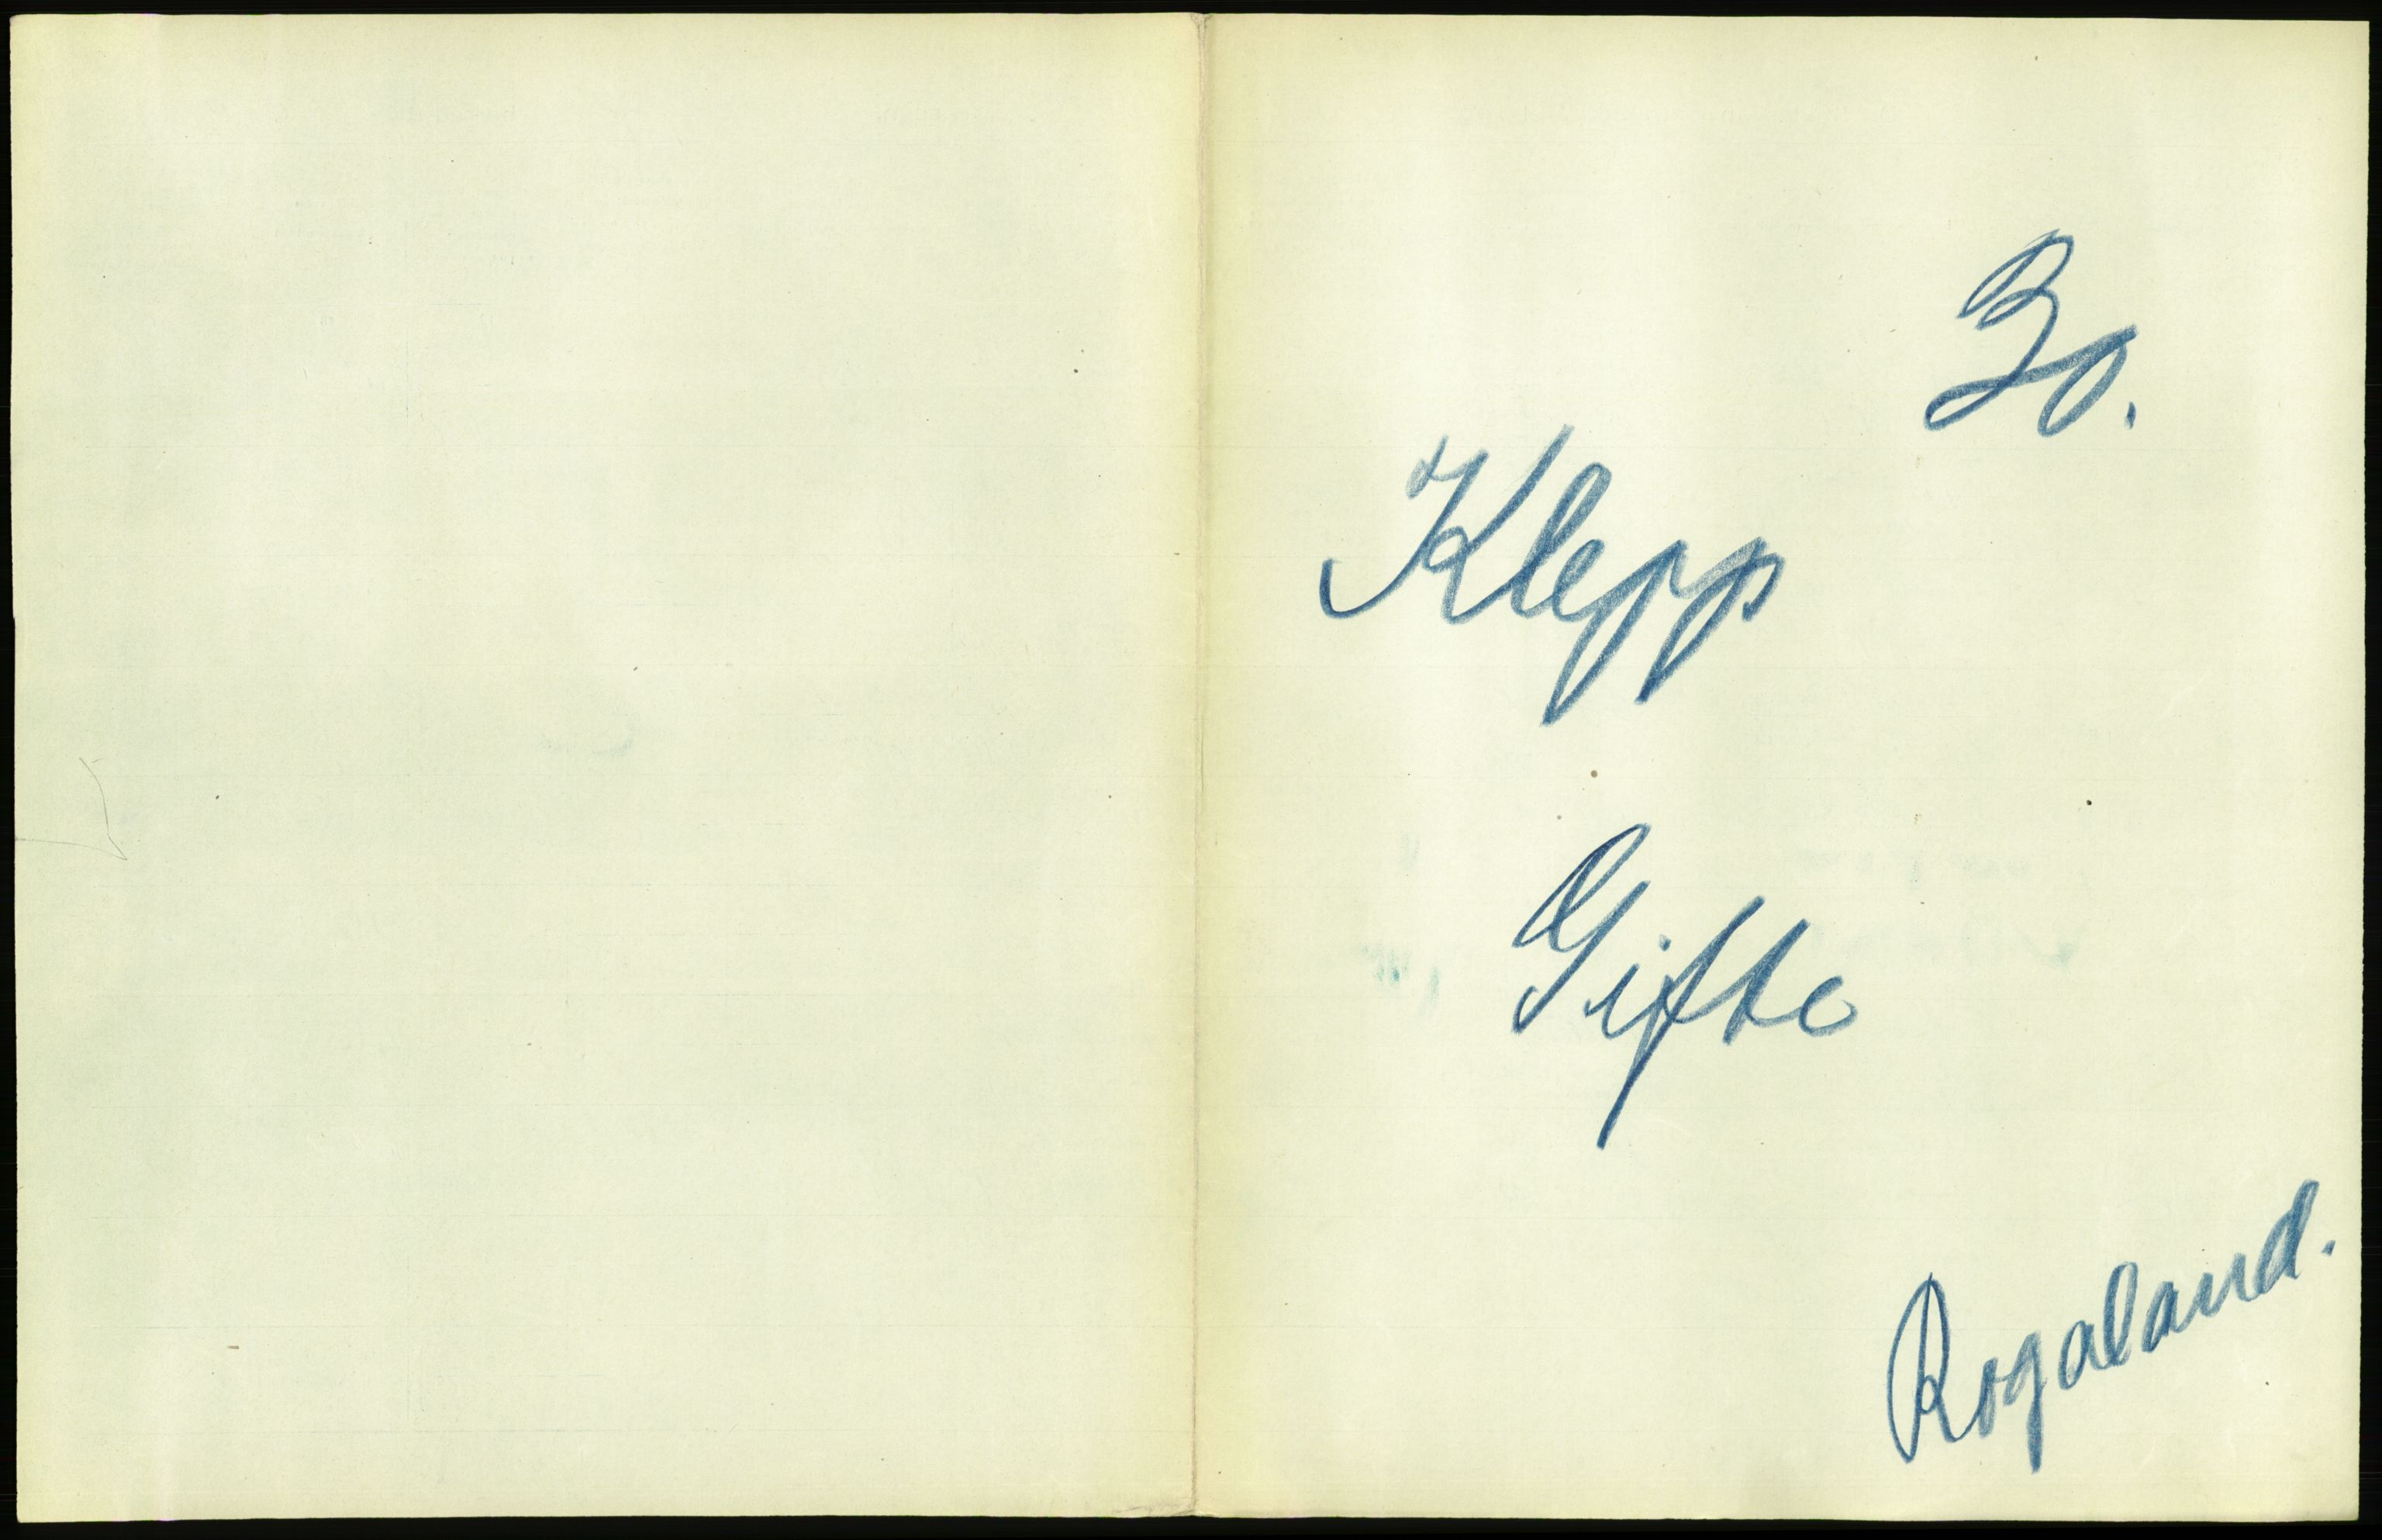 30.
Klepp
Gifte
Rogaland.